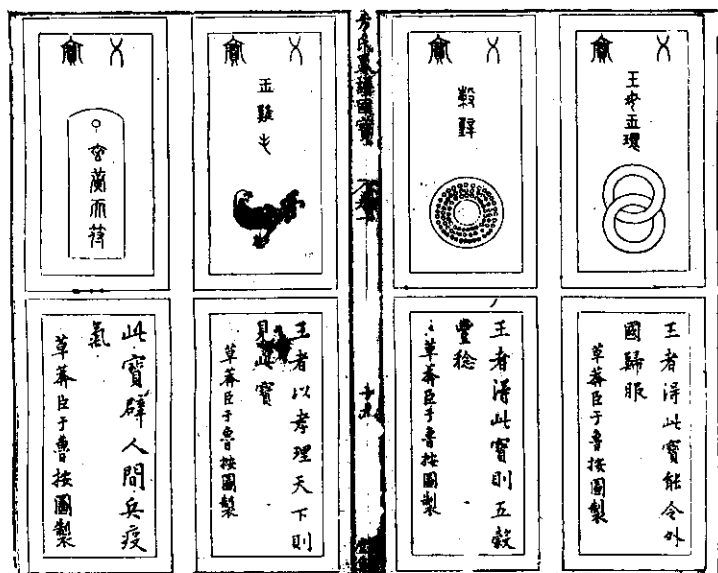 八寶
王母玉環
王者得此寶能令外
國歸服
草莽臣于魯按圖製
八寶
穀璧
王者得此寶則五穀
豐稔
草莽臣于魯按圖製
方氏墨譜國寶
卷一
八寶
玉雞毛
王者以孝理天下則
見此寶
草莽臣于魯按圖製
八寶
玄黃天符
此寶辟人間兵疫
氣
草莽臣于魯按圖製